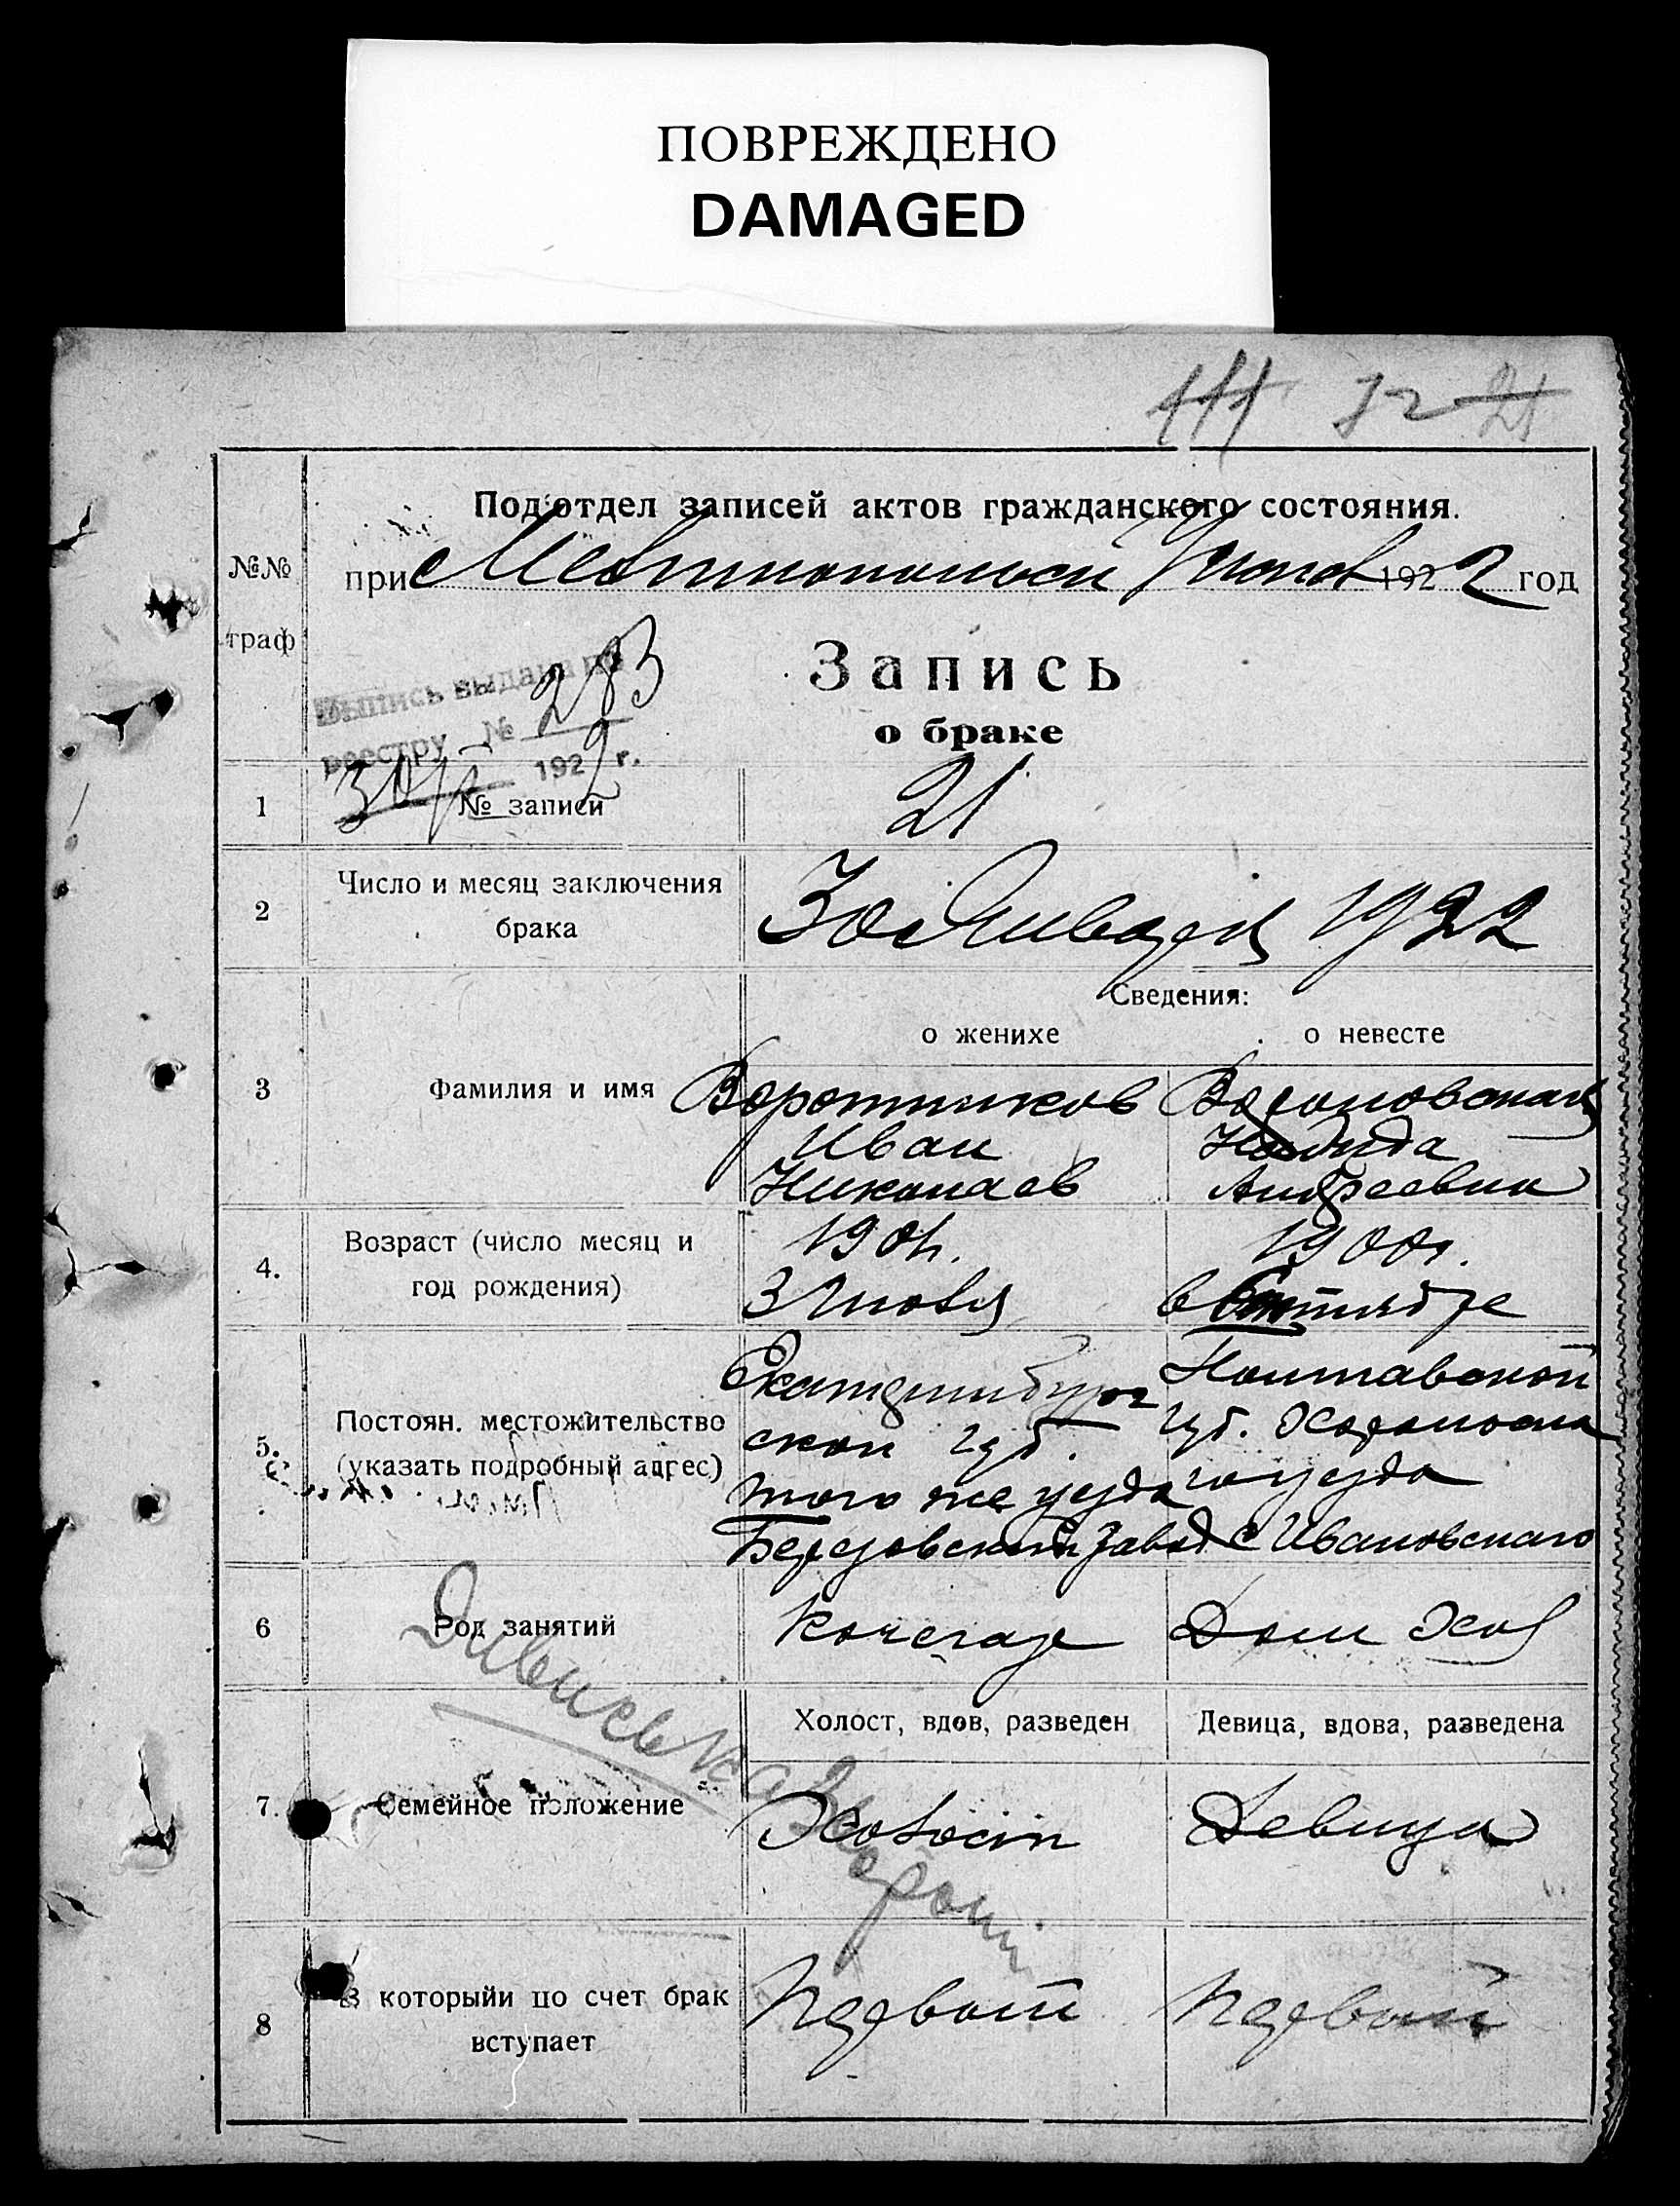 ПОВРЕЖДЕНО
DAMAGED
21
Под'отдел записей актов гражданского состояния.
№№
граф
при 1922 год
Запись
о браке
Выпись выдана по
реестру № 283
1922 г.
1
№ записи
21
2
Число и месяц заключения
брака
30 Января 1922
Сведения:
о женихе
о невесте
3
Фамилия и имя
Воротников
Иван
Николаев
Андреевна
4.
Возраст (число месяц и
год рождения)
1901г.
3 Июля
1900г.
в Сентябре
5.
Постоян. местожительство
(указать подробный адрес)
Екатеринбург
ской губ.
того же уезда
Березовский завод
Полтавской
губ. Хорольска
го уезда
с Ивановскаго
6
Род занятий
Кочегар
Дом Хоз
Холост, вдов, разведен
Девица, вдова, разведена
7.
Семейное положение
Холост
Девица
8
В которыйи по счет брак
вступает
Первый
Первый